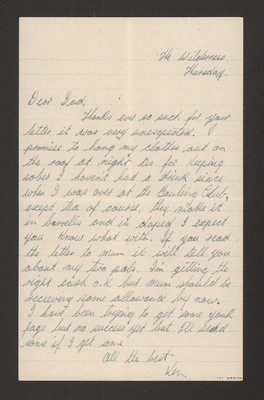 The Wilderness
Thursday.
Dear Dad,
Thanks ever so much for your
letter it was very unexpected. I
promise to hang my clothes out on
the roof at night. As for keeping
sober I haven't had a drink since
when I was over at the Bowling Club,
except tea of course, they make it
in barrells and it's doped I expect
you know what with. If you read
the letter to mum it will tell you
about my two pals. I'm getting the
right cash o.k. but mum should be
receiving some allowance by now.
I have been trying to get some
fags but no success yet but I'll send
some if I get some.
All the best.
Ken.